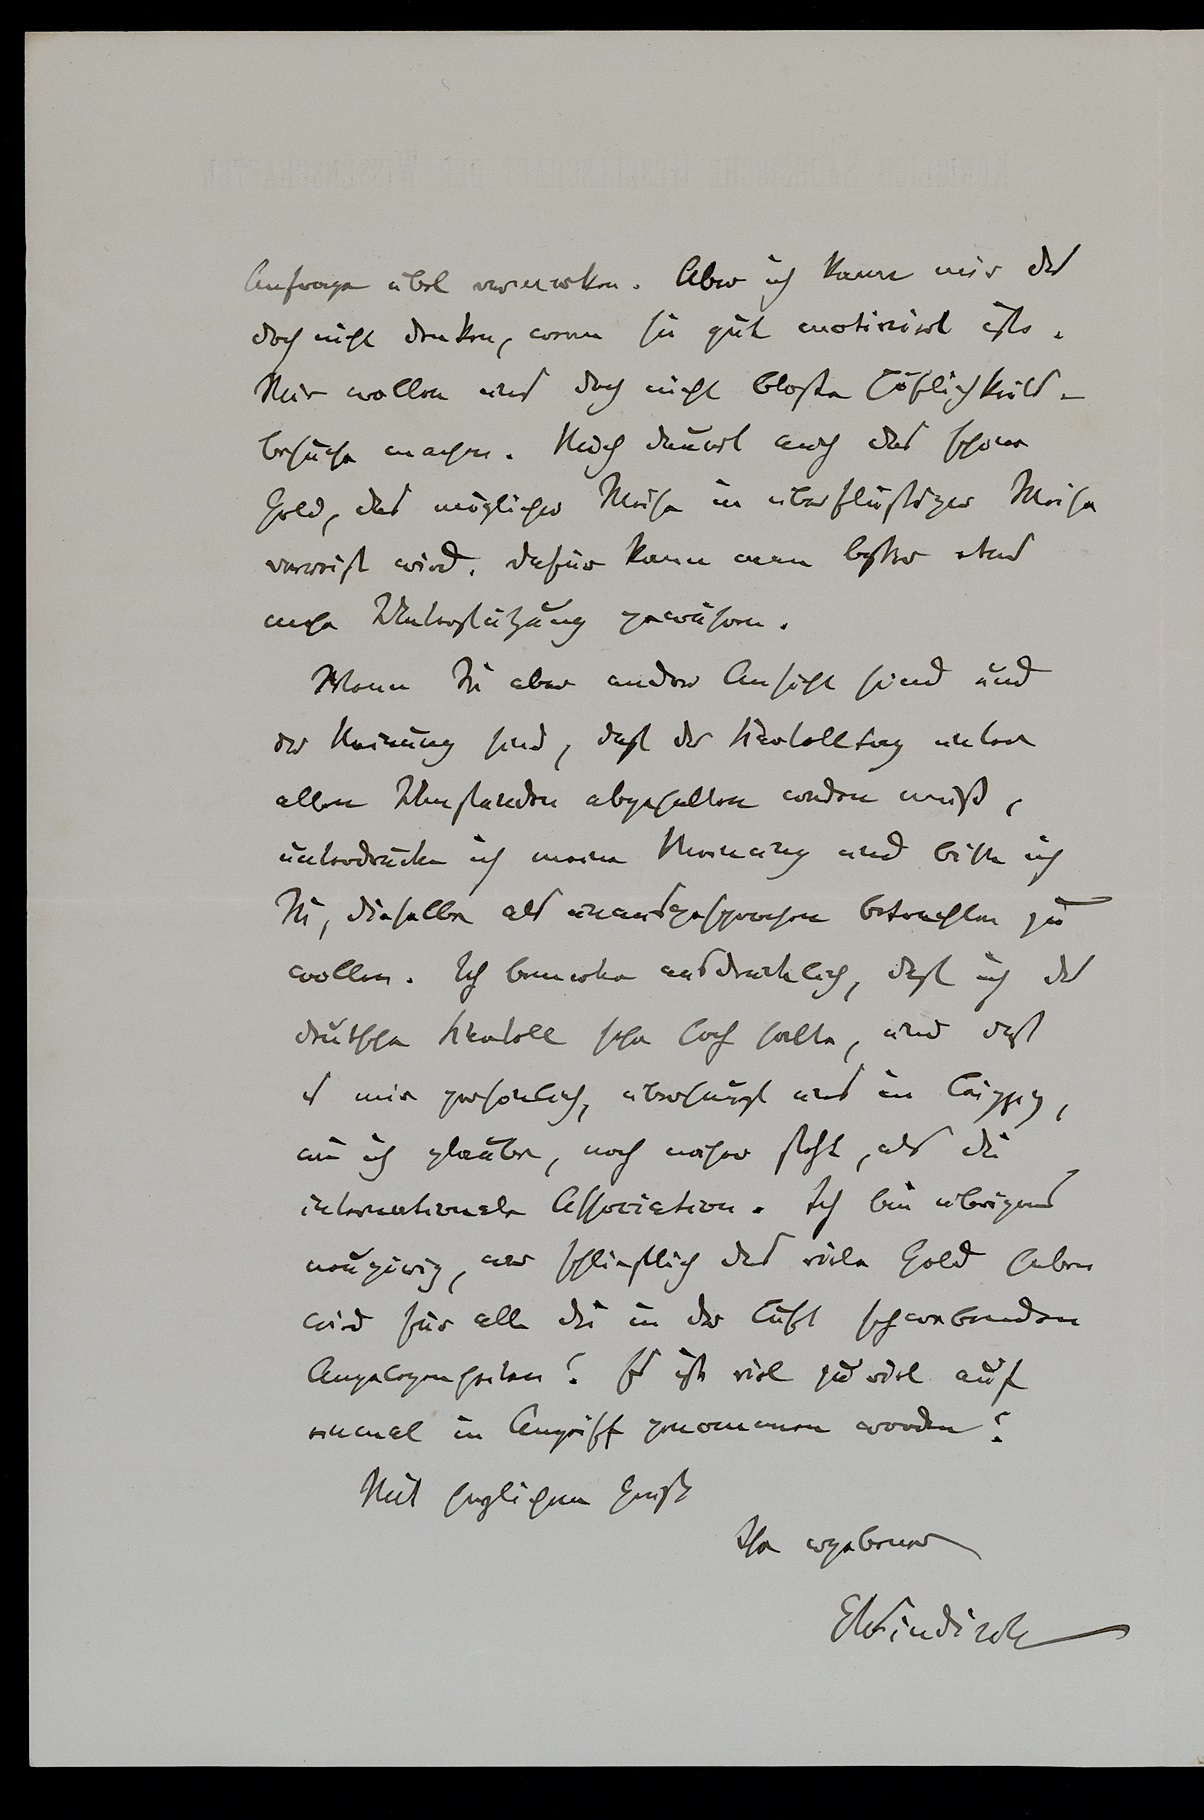 Anfrage übel vermerken. Aber ich kann mir das
doch nicht denken, wenn sie gut motivirt ist.
Wir wollen uns doch nicht blosse Höflichkeits-
besuche machen. Mich dauert auch das schöne
Geld, das möglicher Weise in überflüssiger Weise
verreist wird. Dafür kann man besser etwas
Unterstützung gewähren.
Wenn Sie aber andrer Ansicht sind und
der Meinung sind, dass der Kartelltag unter
allen Umständen abgehalten werden muss,
unterdrücke ich meine Meinung und bitte ich
Sie, dieselbe als unausgesprochen betrachten zu
wollen. Ich bemerke ausdrücklich, dass ich das
deutsche Kartell sehr hoch halte, und dass
es mir persönlich, überhaupt uns in Leipzig,
wie ich glaube, noch näher steht, als die
internationale Association. Ich bin übrigens
neugierig, wer schliesslich das viele Geld haben
wird für alle die in der Luft schwebenden
Angelegenheiten! Es ist viel zu viel auf
einmal in Angriff genommen worden!
Mit herzlichem Gruss
Ihr ergebener
EWindisch